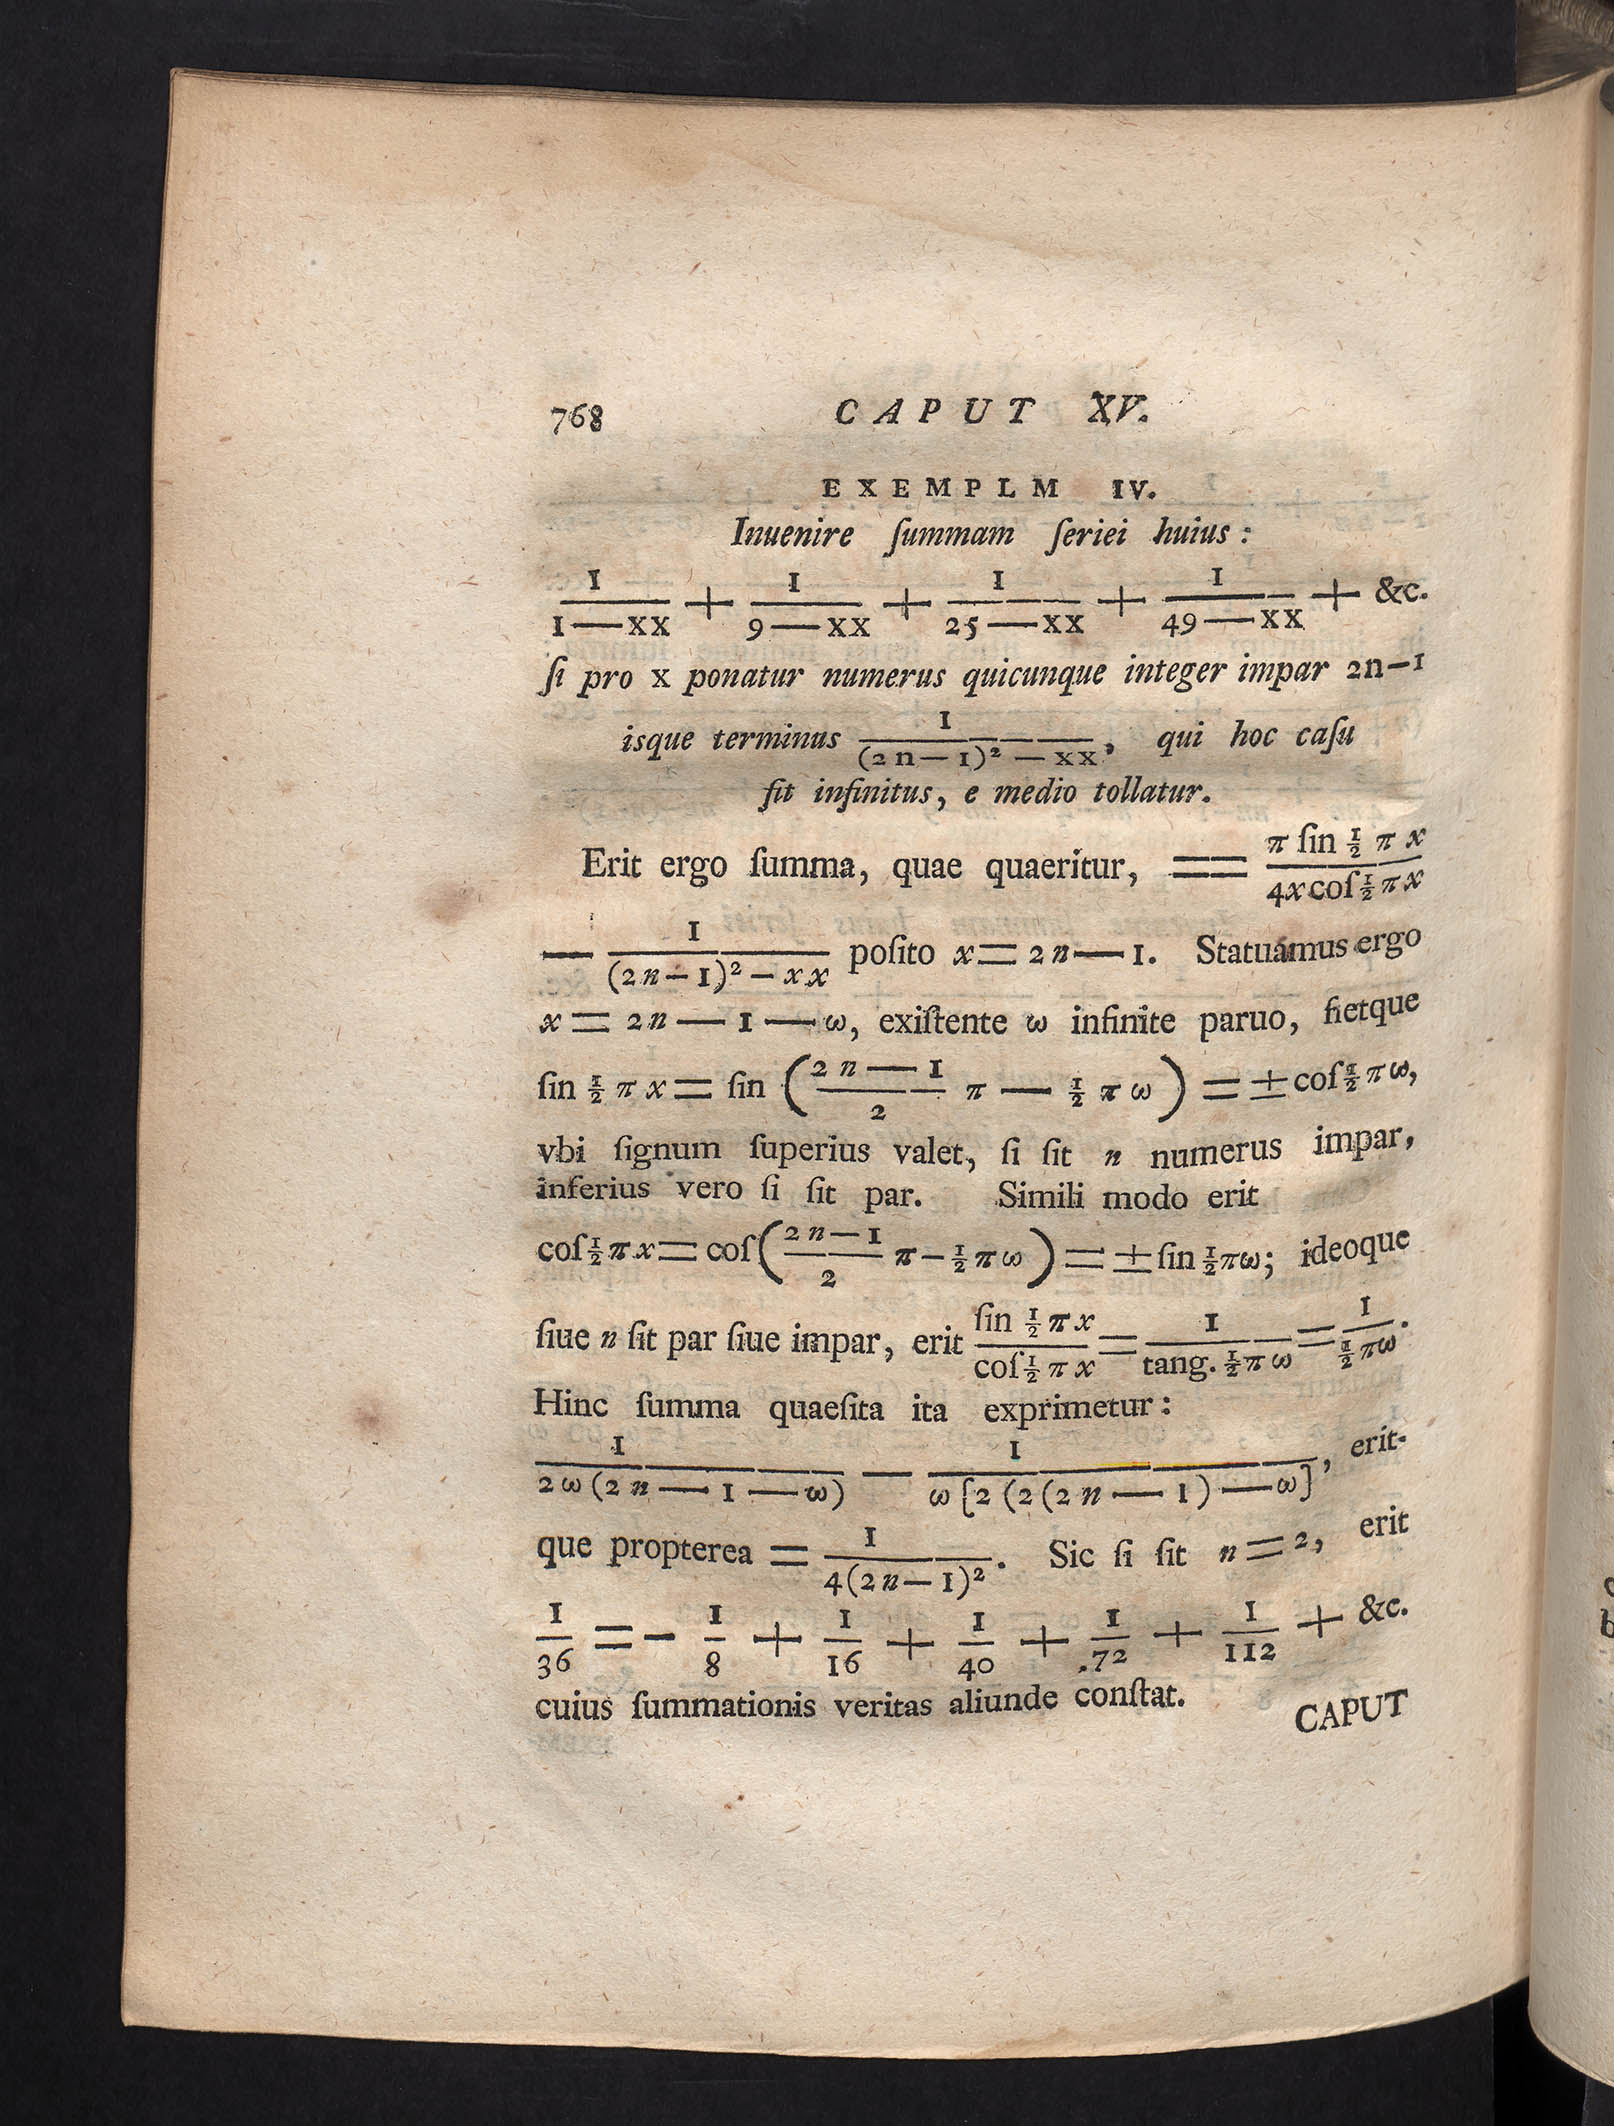 768 CAPUT XV.
EXEMPLM IV.
Inuenire ſummam ſeriei huius:
1/(1—xx) + 1/(9—xx) + 1/(25—xx) + 1/(49—xx) + &c.
ſi pro x ponatur numerus quicunque integer impar 2n—1
isque terminus 1/((2n—1)² — xx), qui hoc caſu
fit infinitus, e medio tollatur.
Erit ergo ſumma, quae quaeritur, = π ſin ½ π x / 4x coſ ½ π x
— 1/((2n—1)² — xx) poſito x = 2n—1. Statuamus ergo
x = 2n — 1 — ω, exiſtente ω infinite paruo, fietque
ſin ½ π x = ſin ((2n—1)/2 π — ½ π ω) = ± coſ ½ π ω,
vbi ſignum ſuperius valet, ſi ſit n numerus impar,
inferius vero ſi ſit par. Simili modo erit
coſ ½ π x = coſ ((2n—1)/2 π — ½ π ω) = ± ſin ½ π ω; ideoque
ſiue n ſit par ſiue impar, erit ſin ½ π x / coſ ½ π x = 1/(tang. ½ π ω) = 1/(½ π ω).
Hinc ſumma quaeſita ita exprimetur:
1/(2ω(2n — 1 — ω)) — 1/(ω[2(2(2n — 1) — ω]), erit-
que propterea = 1/(4(2n—1)²). Sic ſi ſit n = 2, erit
1/36 = — 1/8 + 1/16 + 1/40 + 1/72 + 1/112 + &c.
cuius ſummationis veritas aliunde conſtat.
CAPUT